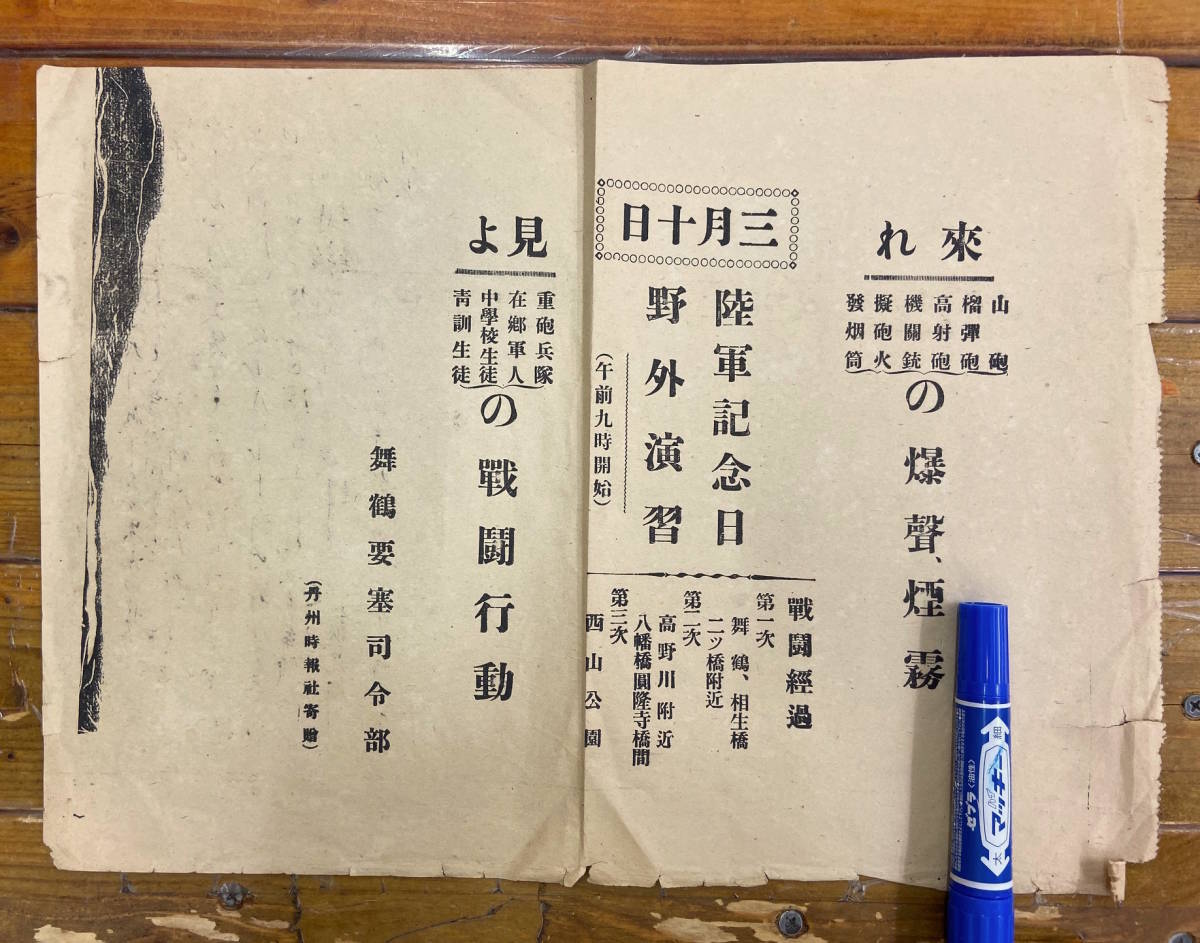 來れ
山砲
榴彈砲
高射砲
機關銃
擬砲火
發烟筒
の爆聲、煙霧
三月十日
陸軍記念日
野外演習
(午前九時開始)
戰鬪經過
第一次
舞鶴、相生橋
二ッ橋附近
第二次
高野川附近
八幡橋圓隆寺橋間
第三次
西山公園
見よ
重砲兵隊
在鄕軍人
中學校生徒
靑訓生徒
の戰鬪行動
舞鶴要塞司令部
(丹州時報社寄贈)
細
マッキー
ゼブラ
〈油性〉
太